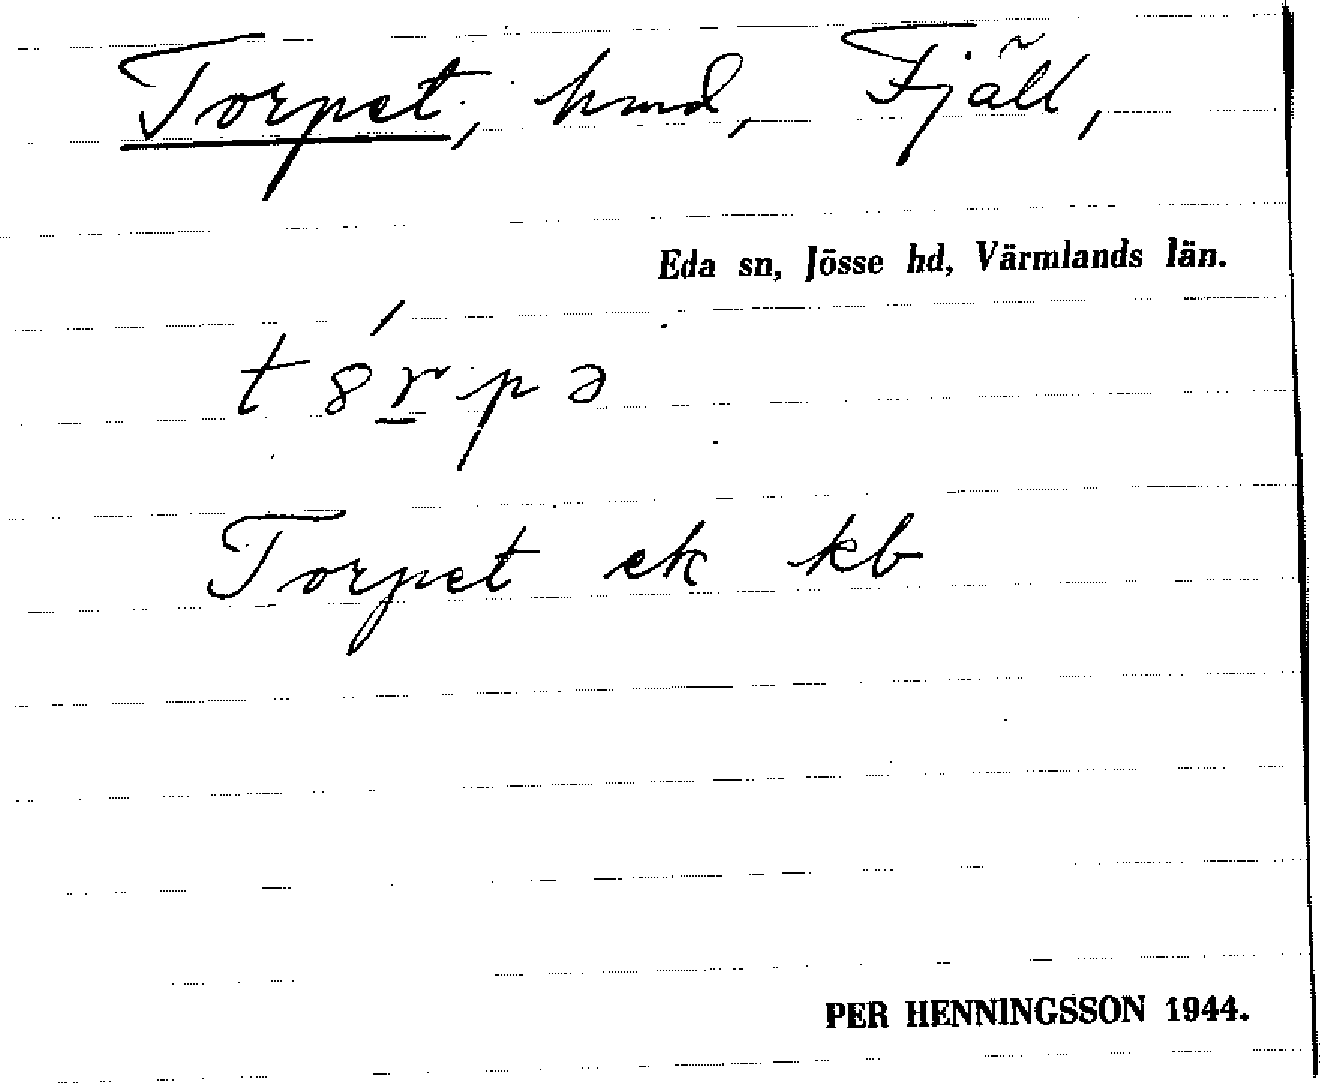 Torpet, hmd, Fjäll,
Eda sn, Jösse hd, Värmlands län.
t8́r̲pə
Torpet ek kb
PER HENNINGSSON 1944.